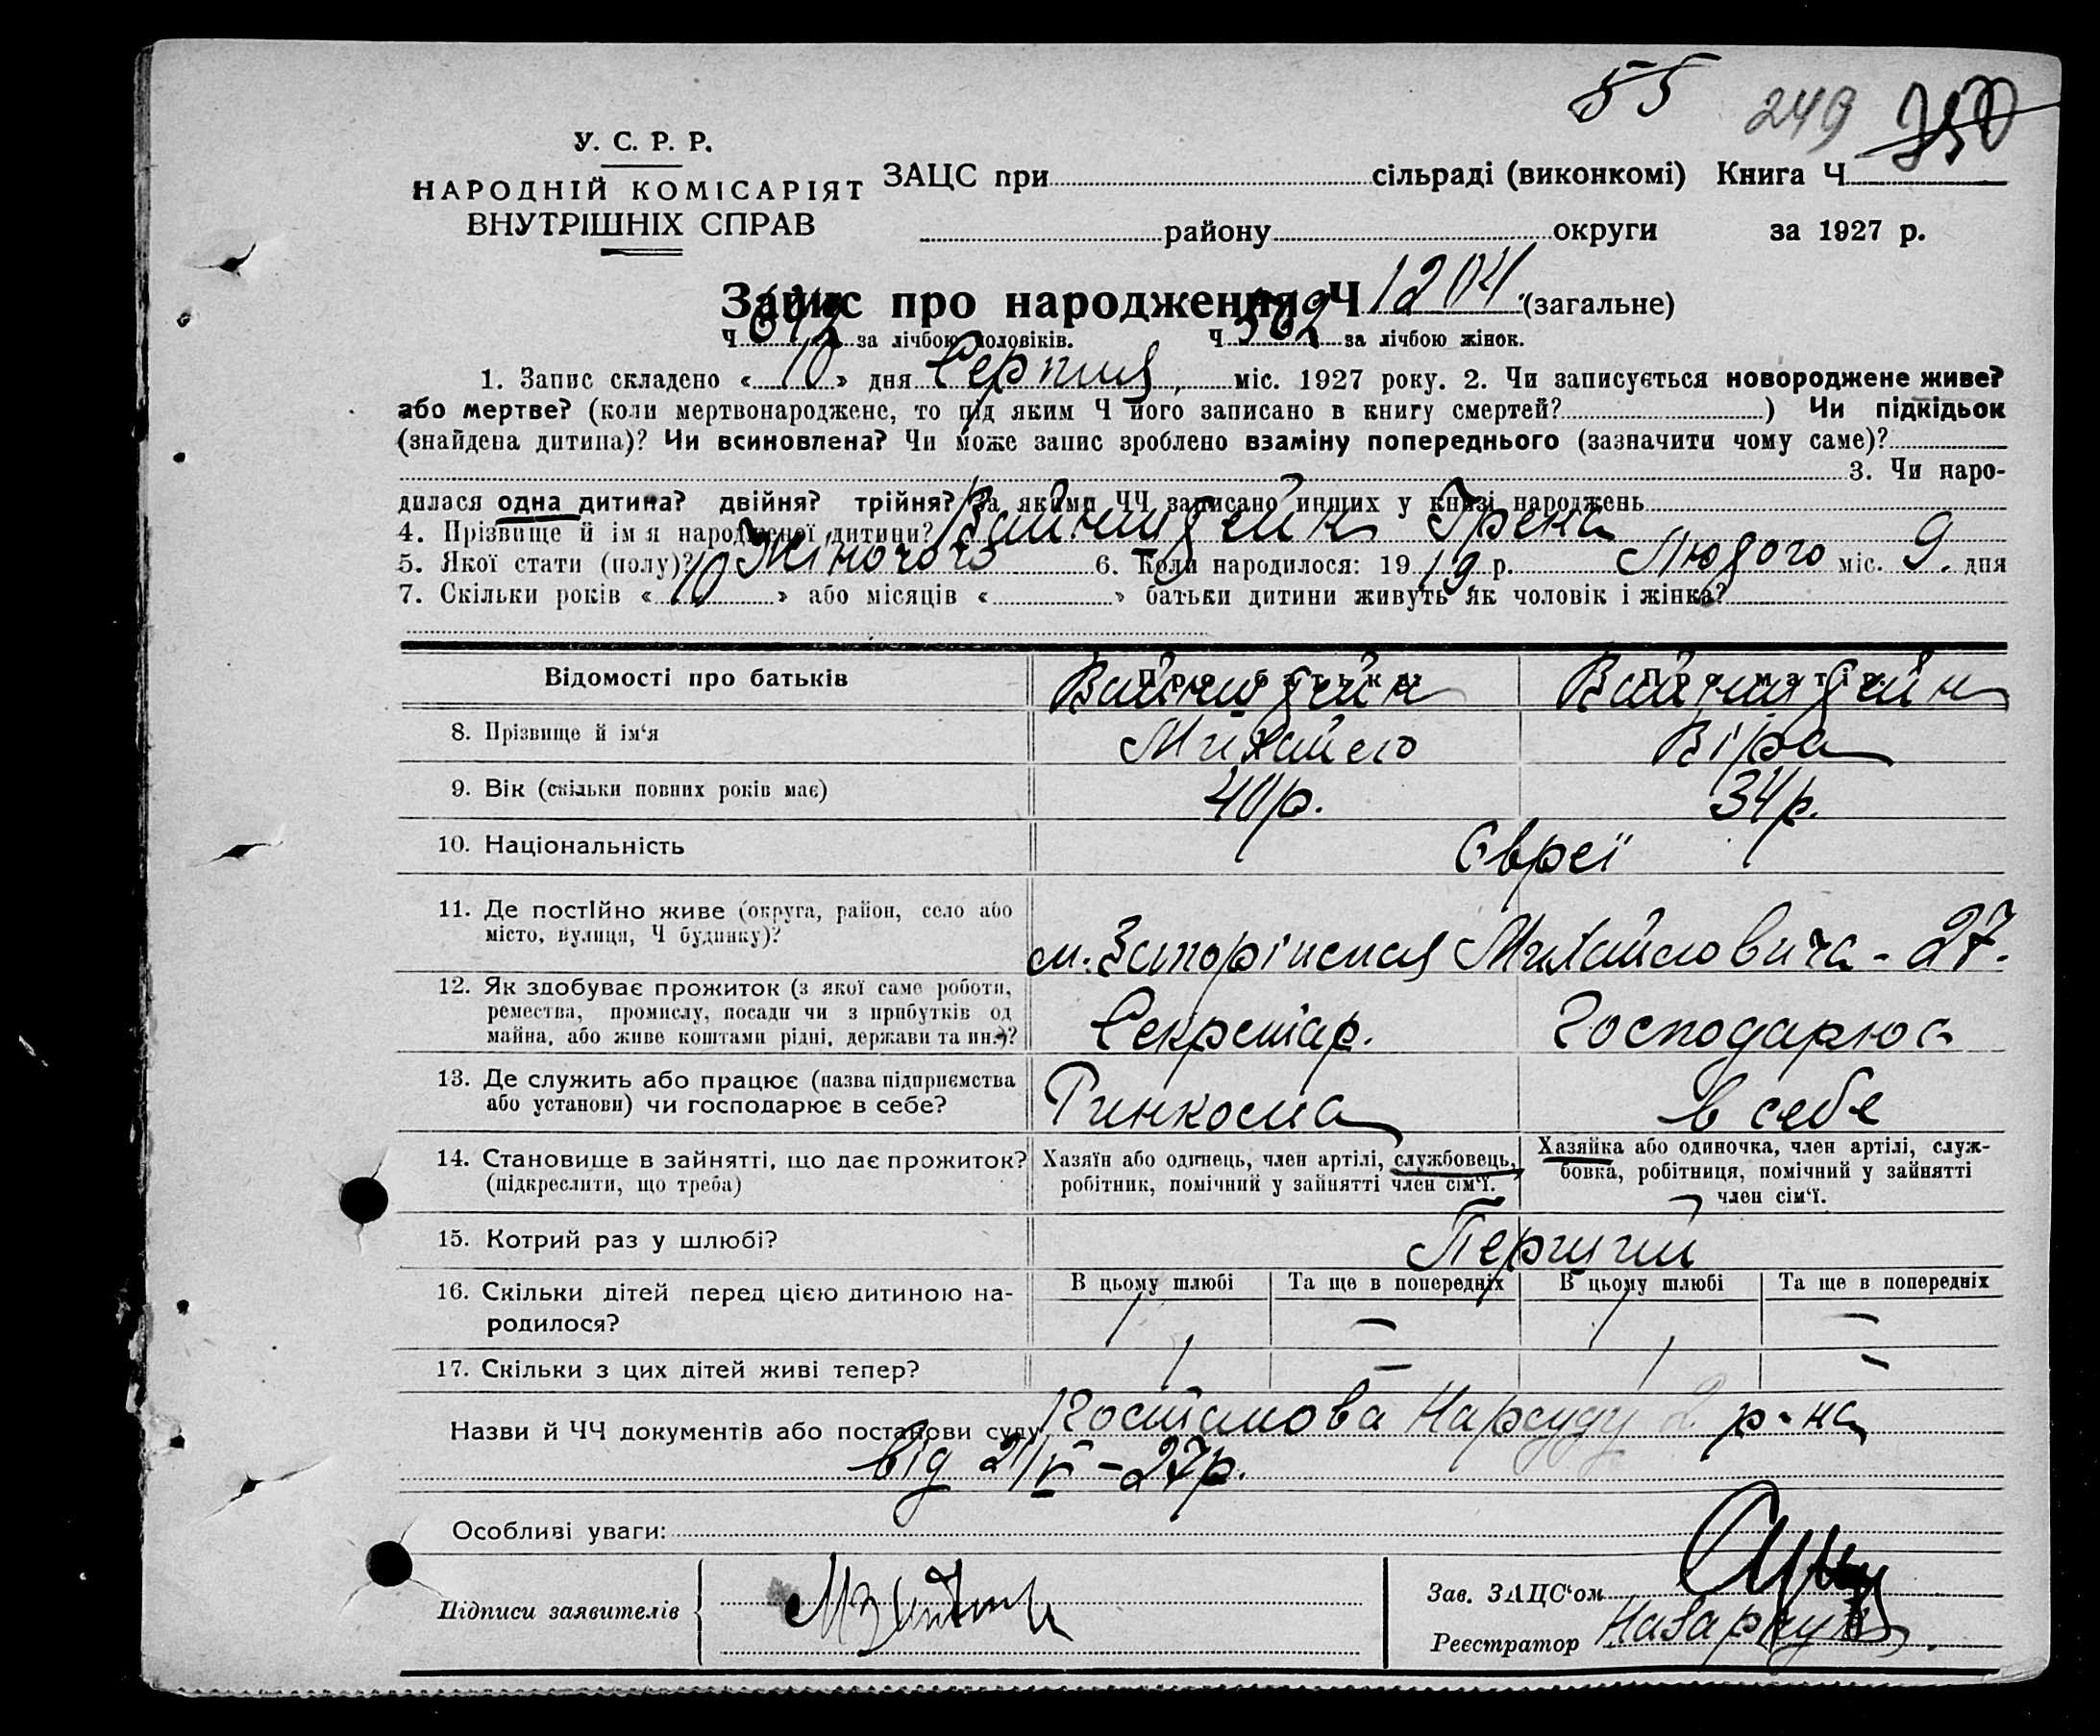 55 249 350
У. С. Р. Р.
НАРОДНІЙ КОМІСАРІЯТ
ВНУТРІШНІХ СПРАВ
ЗАЦС при сільраді (виконкомі) Книга Ч
району округи за 1927 р.
Запис про народження Ч 1204 (загальне)
Ч 642 за лічбою чоловіків. Ч 562 за лічбою жінок.
1. Запис складено « 10 » дня Серпня міс. 1927 року. 2. Чи записується новороджене живе?
або мертве? (коли мертвонароджене, то під яким Ч його записано в книгу смертей? ) Чи підкідьок
(знайдена дитина)? Чи всиновлена? Чи може запис зроблено взаміну попереднього (зазначити чому саме)?
3. Чи наро-
дилася одна дитина? двійня? трійня? За якими ЧЧ записано инших у книзі народжень
4. Прізвище й ім'я народженої дитини? Вайнштейн Ірена
5. Якої стати (полу)? Жіночого 6. Коли народилося: 1919 р. Лютого міс. 9. дня
7. Скільки років « 10 » або місяців « » батьки дитини живуть як чоловік і жінка?
Відомості про батьків Про батька Про матір
Вайнштейн Вайнштейн
8. Прізвище й ім'я Михайло Віра
9. Вік (скільки повних років має) 40 р. 34 р.
10. Національність Євреї
11. Де постІйно живе (округа, район, село або
місто, вулиця, Ч будинку)? м. Запоріжжя Михайловича - 27.
12. Як здобуває прожиток (з якої саме роботи,
ремества, промислу, посади чи з прибутків од
майна, або живе коштами рідні, держави та ин.)? Секретар. Господарює
13. Де служить або працює (назва підприємства
або установи) чи господарює в себе? Ринкома в себе
14. Становище в зайнятті, що дає прожиток?
(підкреслити, що треба)
Хазяїн або одинець, член артілі, службовець,
робітник, помічний у зайнятті член сім'ї.
Хазяйка або одиночка, член артілі, служ-
бовка, робітниця, помічний у зайнятті
член сім'ї.
15. Котрий раз у шлюбі? Перший
16. Скільки дітей перед цією дитиною на-
родилося?
В цьому шлюбі Та ще в попередніх В цьому шлюбі Та ще в попередніх
1 — 1 —
17. Скільки з цих дітей живі тепер? 1 — 1 —
Назви й ЧЧ документів або постанови суду Постанова Нарсуду 2 р-на
від 21/V - 27 р.
Особливі уваги:
Підписи заявителів
Зав. ЗАЦС'ом
Реєстратор